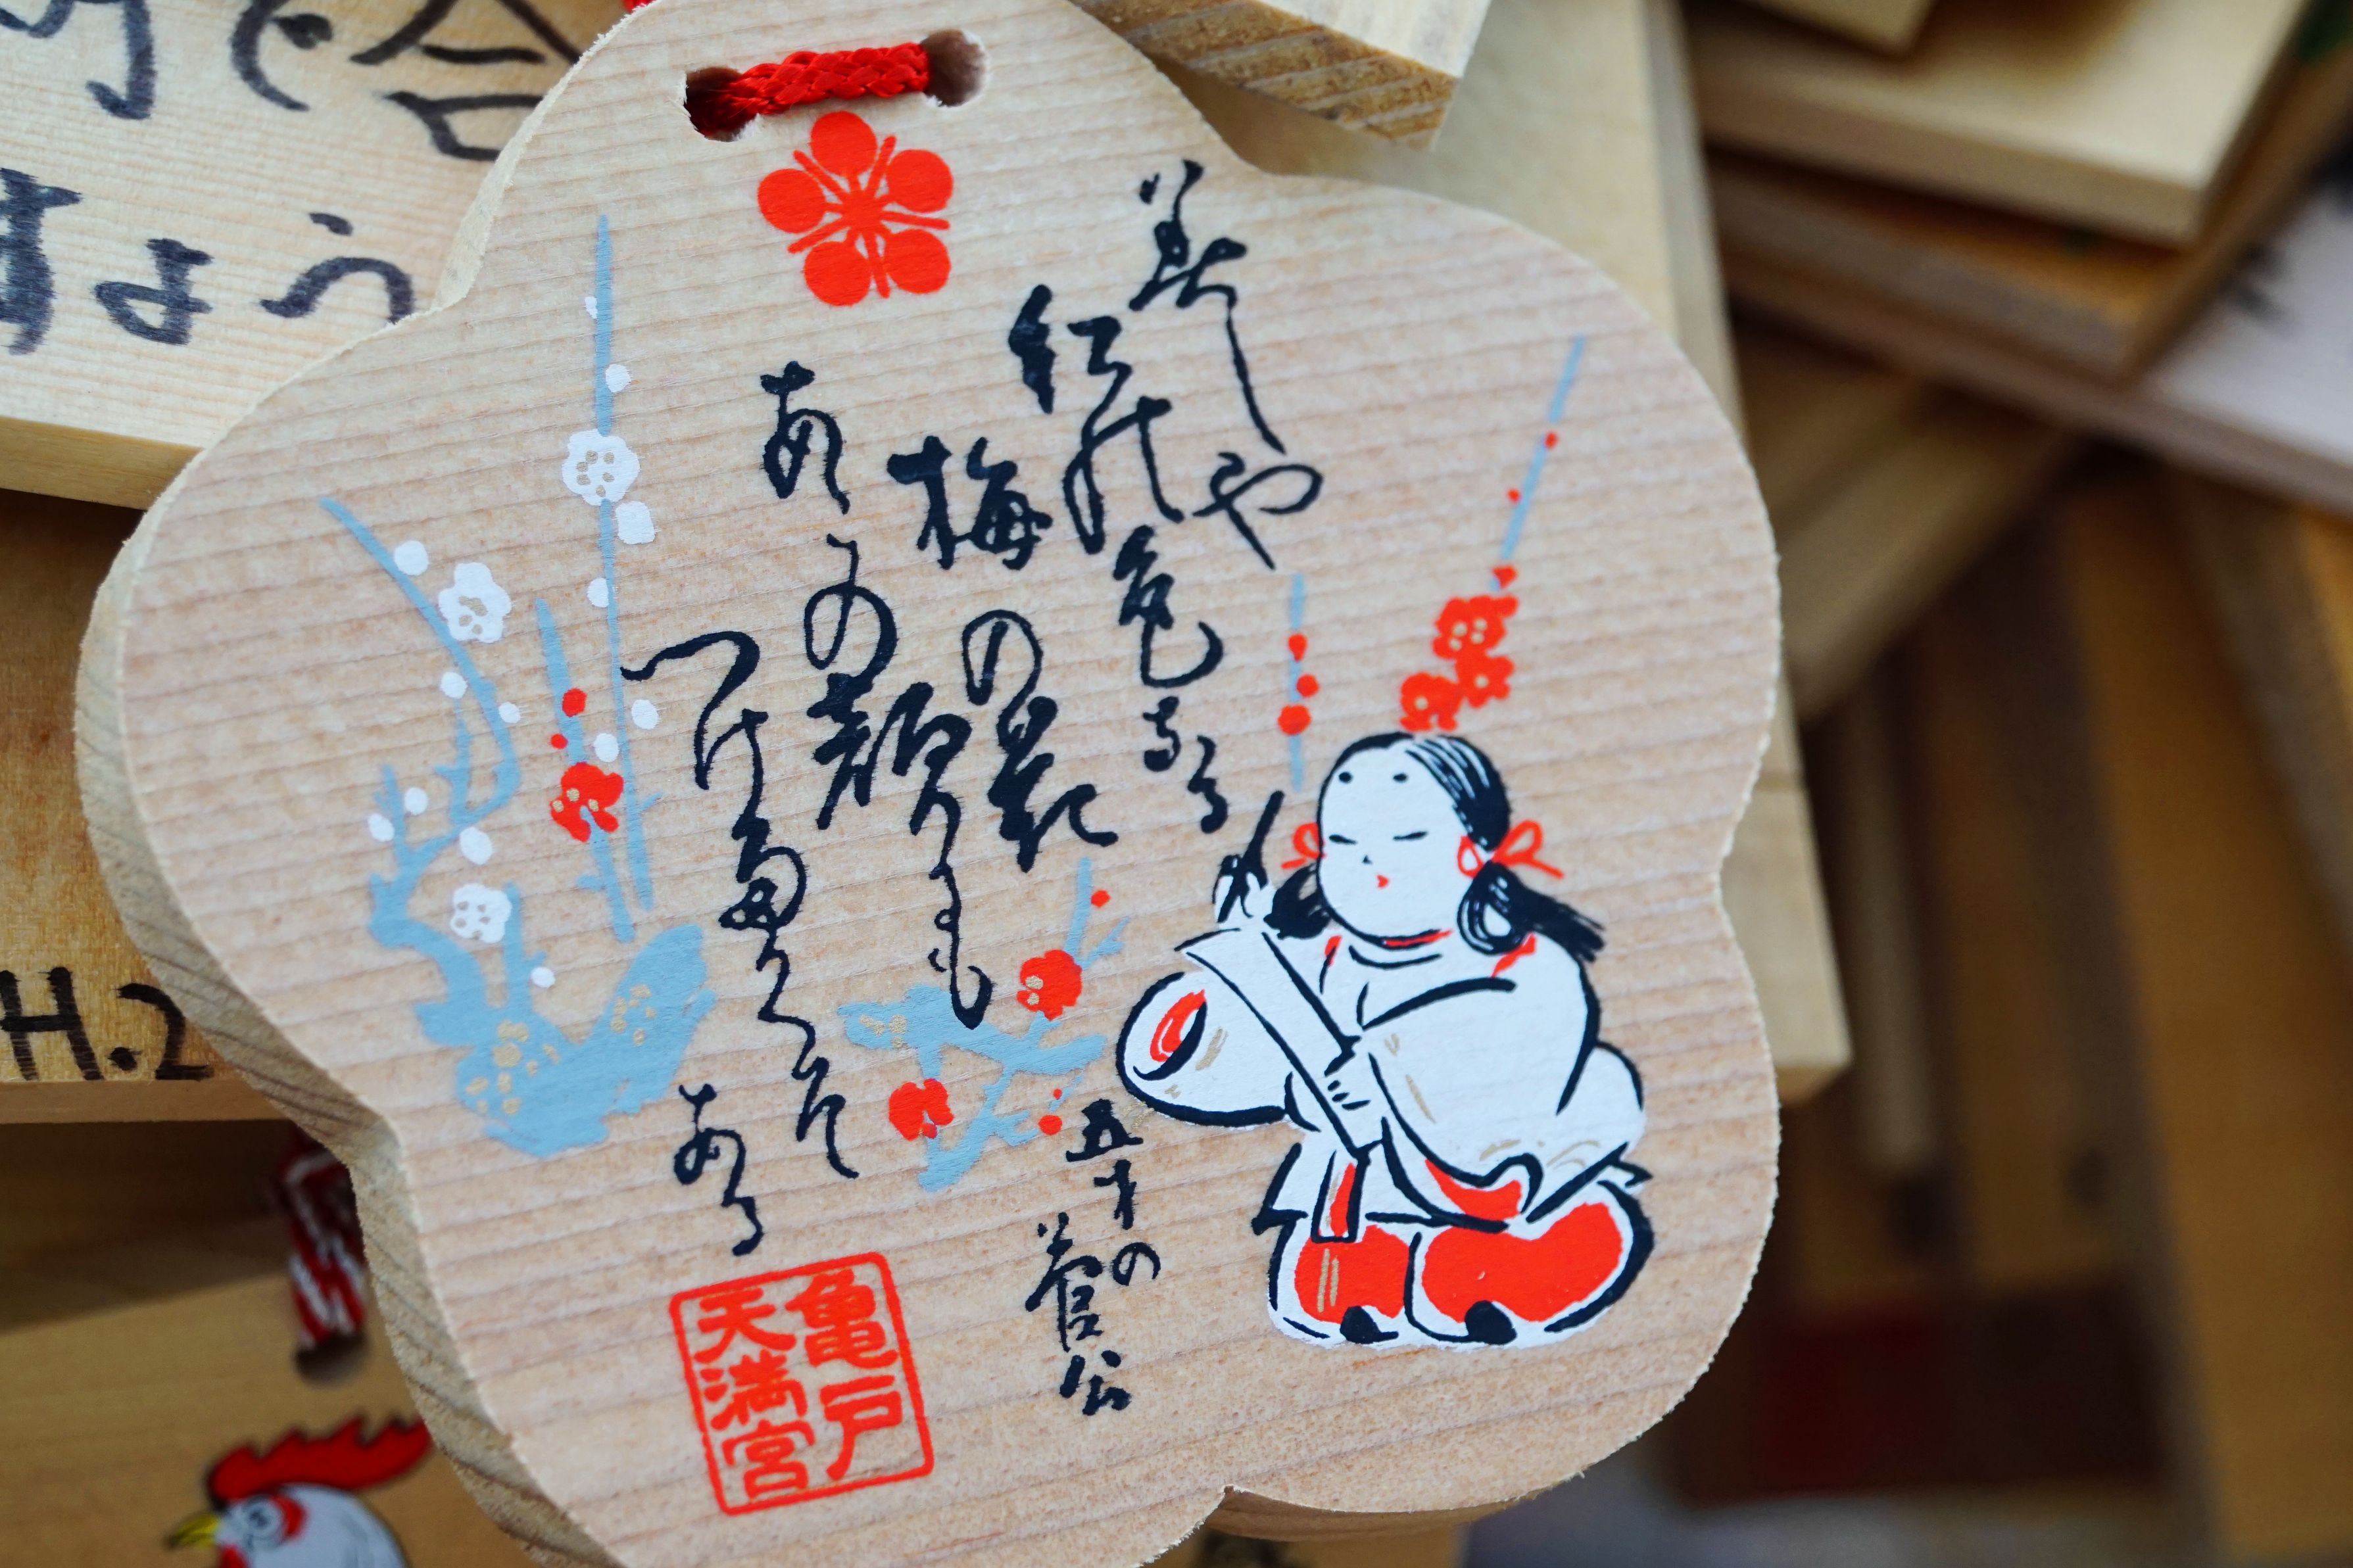 美しや
紅の色なる
梅の花
あこの顔にも
つけたくそ
ある
五才の
菅公
亀戸
天満宮
で合
すよう
H.2